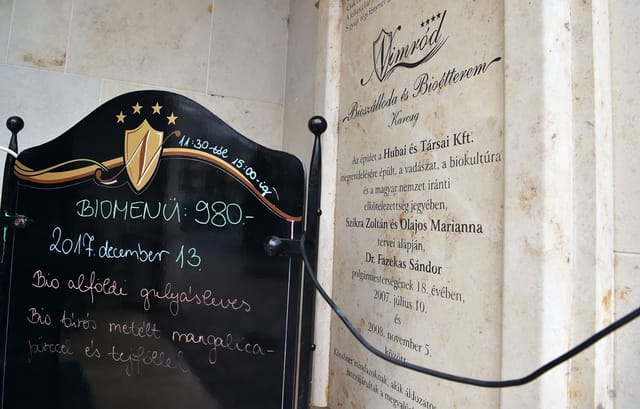 11:30-tól 15:00-ig
BIOMENÜ: 980.-
2017. december 13.
Bio alföldi gulyásleves
Bio túrós metélt mangalica-
pörccel és tejföllel
Nimród
Bioszálloda és Bioétterem
Karcag
Az épület a Hubai és Társai Kft.
megrendelésére épült, a vadászat, a biokultúra
és a magyar nemzet iránti
elkötelezettség jegyében,
Szikra Zoltán és Olajos Marianna
tervei alapján,
Dr. Fazekas Sándor
polgármesterségének 18. évében,
2007. július 10.
és
2008. november 5.
között.
Köszönet mindazoknak, akik áldozatos
hozzájárultak a